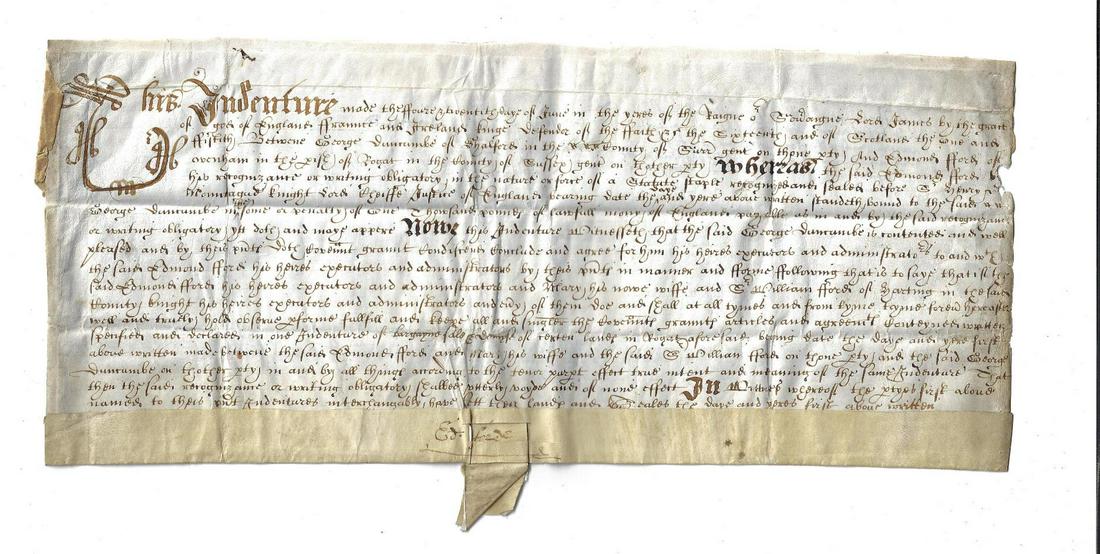 This Indenture made the ffoure & twentith day of June in the yeres of the Raigne of o Soveraigne Lord James by the grace
of god of England ffraunce and Ireland kinge Defender of the ffaith &c the Sixteenth and of Scotland the one and
ffiftith Betwene George Duncumbe of Shalford in the County of Surr gent on thone pty And Edmond fford of
in the pish of Rogat in the County of Sussex gent on thother pty Whereas the said Edmond fford by
his recognizance or writing obligatory in the nature or force of a Statute staple recognized and sealed before S Henry
Mountague knight Lord Cheiffe Justice of England bearing date the daye and yere above written standeth bound to the said
George Duncumbe in the some or penalty of One Thousand pounds of lawfull mony of England payable as in and by the said recognizance
or writing obligatory yt doth and maye appere Nowe this Indenture Witnesseth that the said George Duncumbe is contented and well
pleased and by theis pnts doth Covennt graunt Condiscend Conclude and agree for him his heires executors and administrators to and with
the said Edmond fford his heires executors and administrators by theis pnts in manner and forme following that is to saye that if the
said Edmond fford his heires executors and administrators and Mary his nowe wiffe and S William fford of Harting in the said
County knight his heires executors and administrators and evy of them doe and shall at all tymes and from tyme to tyme forever hereafter
well and truely hold observe pforme fullfill and keepe all and singler the Covennts graunts articles and agreemts Conteyned written
specified and declared in one Indenture of bargayne & of certen lands in Rogat aforesaid bearing date the daye and yere first
above written made betwene the said Edmond fford and Mary his wiffe and the said S William fford on thone pty and the said George
Duncumbe on thother pty in and by all things according to the tenor purpt effect true intent and meaning of the same Indenture That
then the said recognizance or writing obligatory shalbe utterly voyde and of none effect In Witnes whereof the ptyes first above
named to theis pnt Indentures interchangably have sett their hands and Seales the daye and yere first above written
Ed: forde